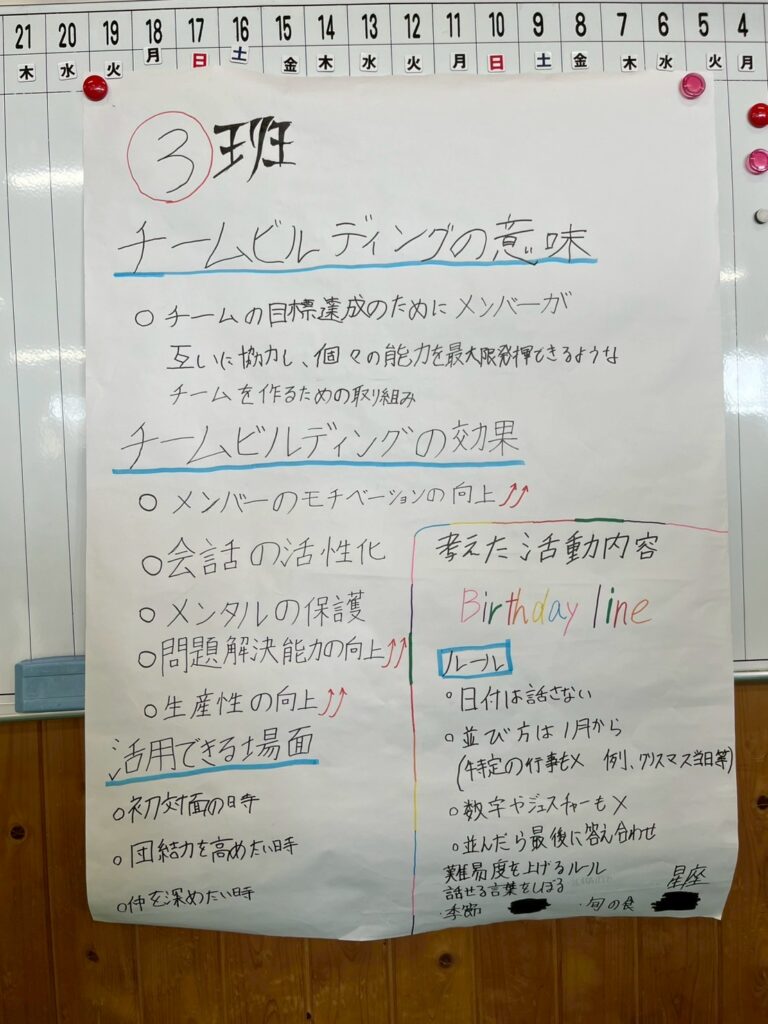 21 20 19 18 17 16 15 14 13 12 11 10 9 8 7 6 5 4
木 水 火 月 日 土 金 木 水 火 月 日 土 金 木 水 火 月
3班
チームビルディングの意味
○ チームの目標達成のためにメンバーが
互いに協力し、個々の能力を最大限発揮できるような
チームを作るための取り組み
チームビルディングの効果
○ メンバーのモチベーションの向上↑↑
○ 会話の活性化
○ メンタルの保護
○ 問題解決能力の向上↑↑
○ 生産性の向上↑↑
活用できる場面
○ 初対面の時
○ 団結力を高めたい時
○ 仲を深めたい時
考えた活動内容
Birthday line
ルール
○ 日付は話さない
○ 並び方は1月から
(特定の行事も× 例、クリスマス当日等)
○ 数字やジェスチャーも×
○ 並んだら最後に答え合わせ
難易度を上げるルール
話せる言葉をしぼる
・季節 ・旬の食 星座